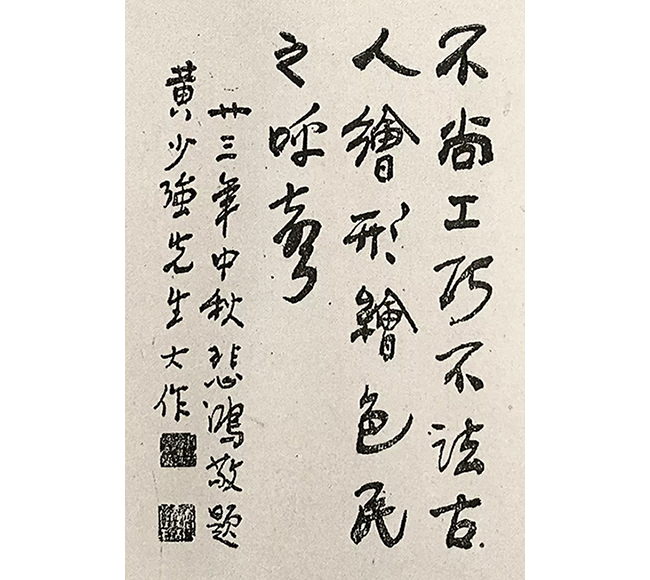 不尚工巧不法古
人繪形繪色民
之呼聲
廿三年中秋悲鴻敬題
黃少強先生大作